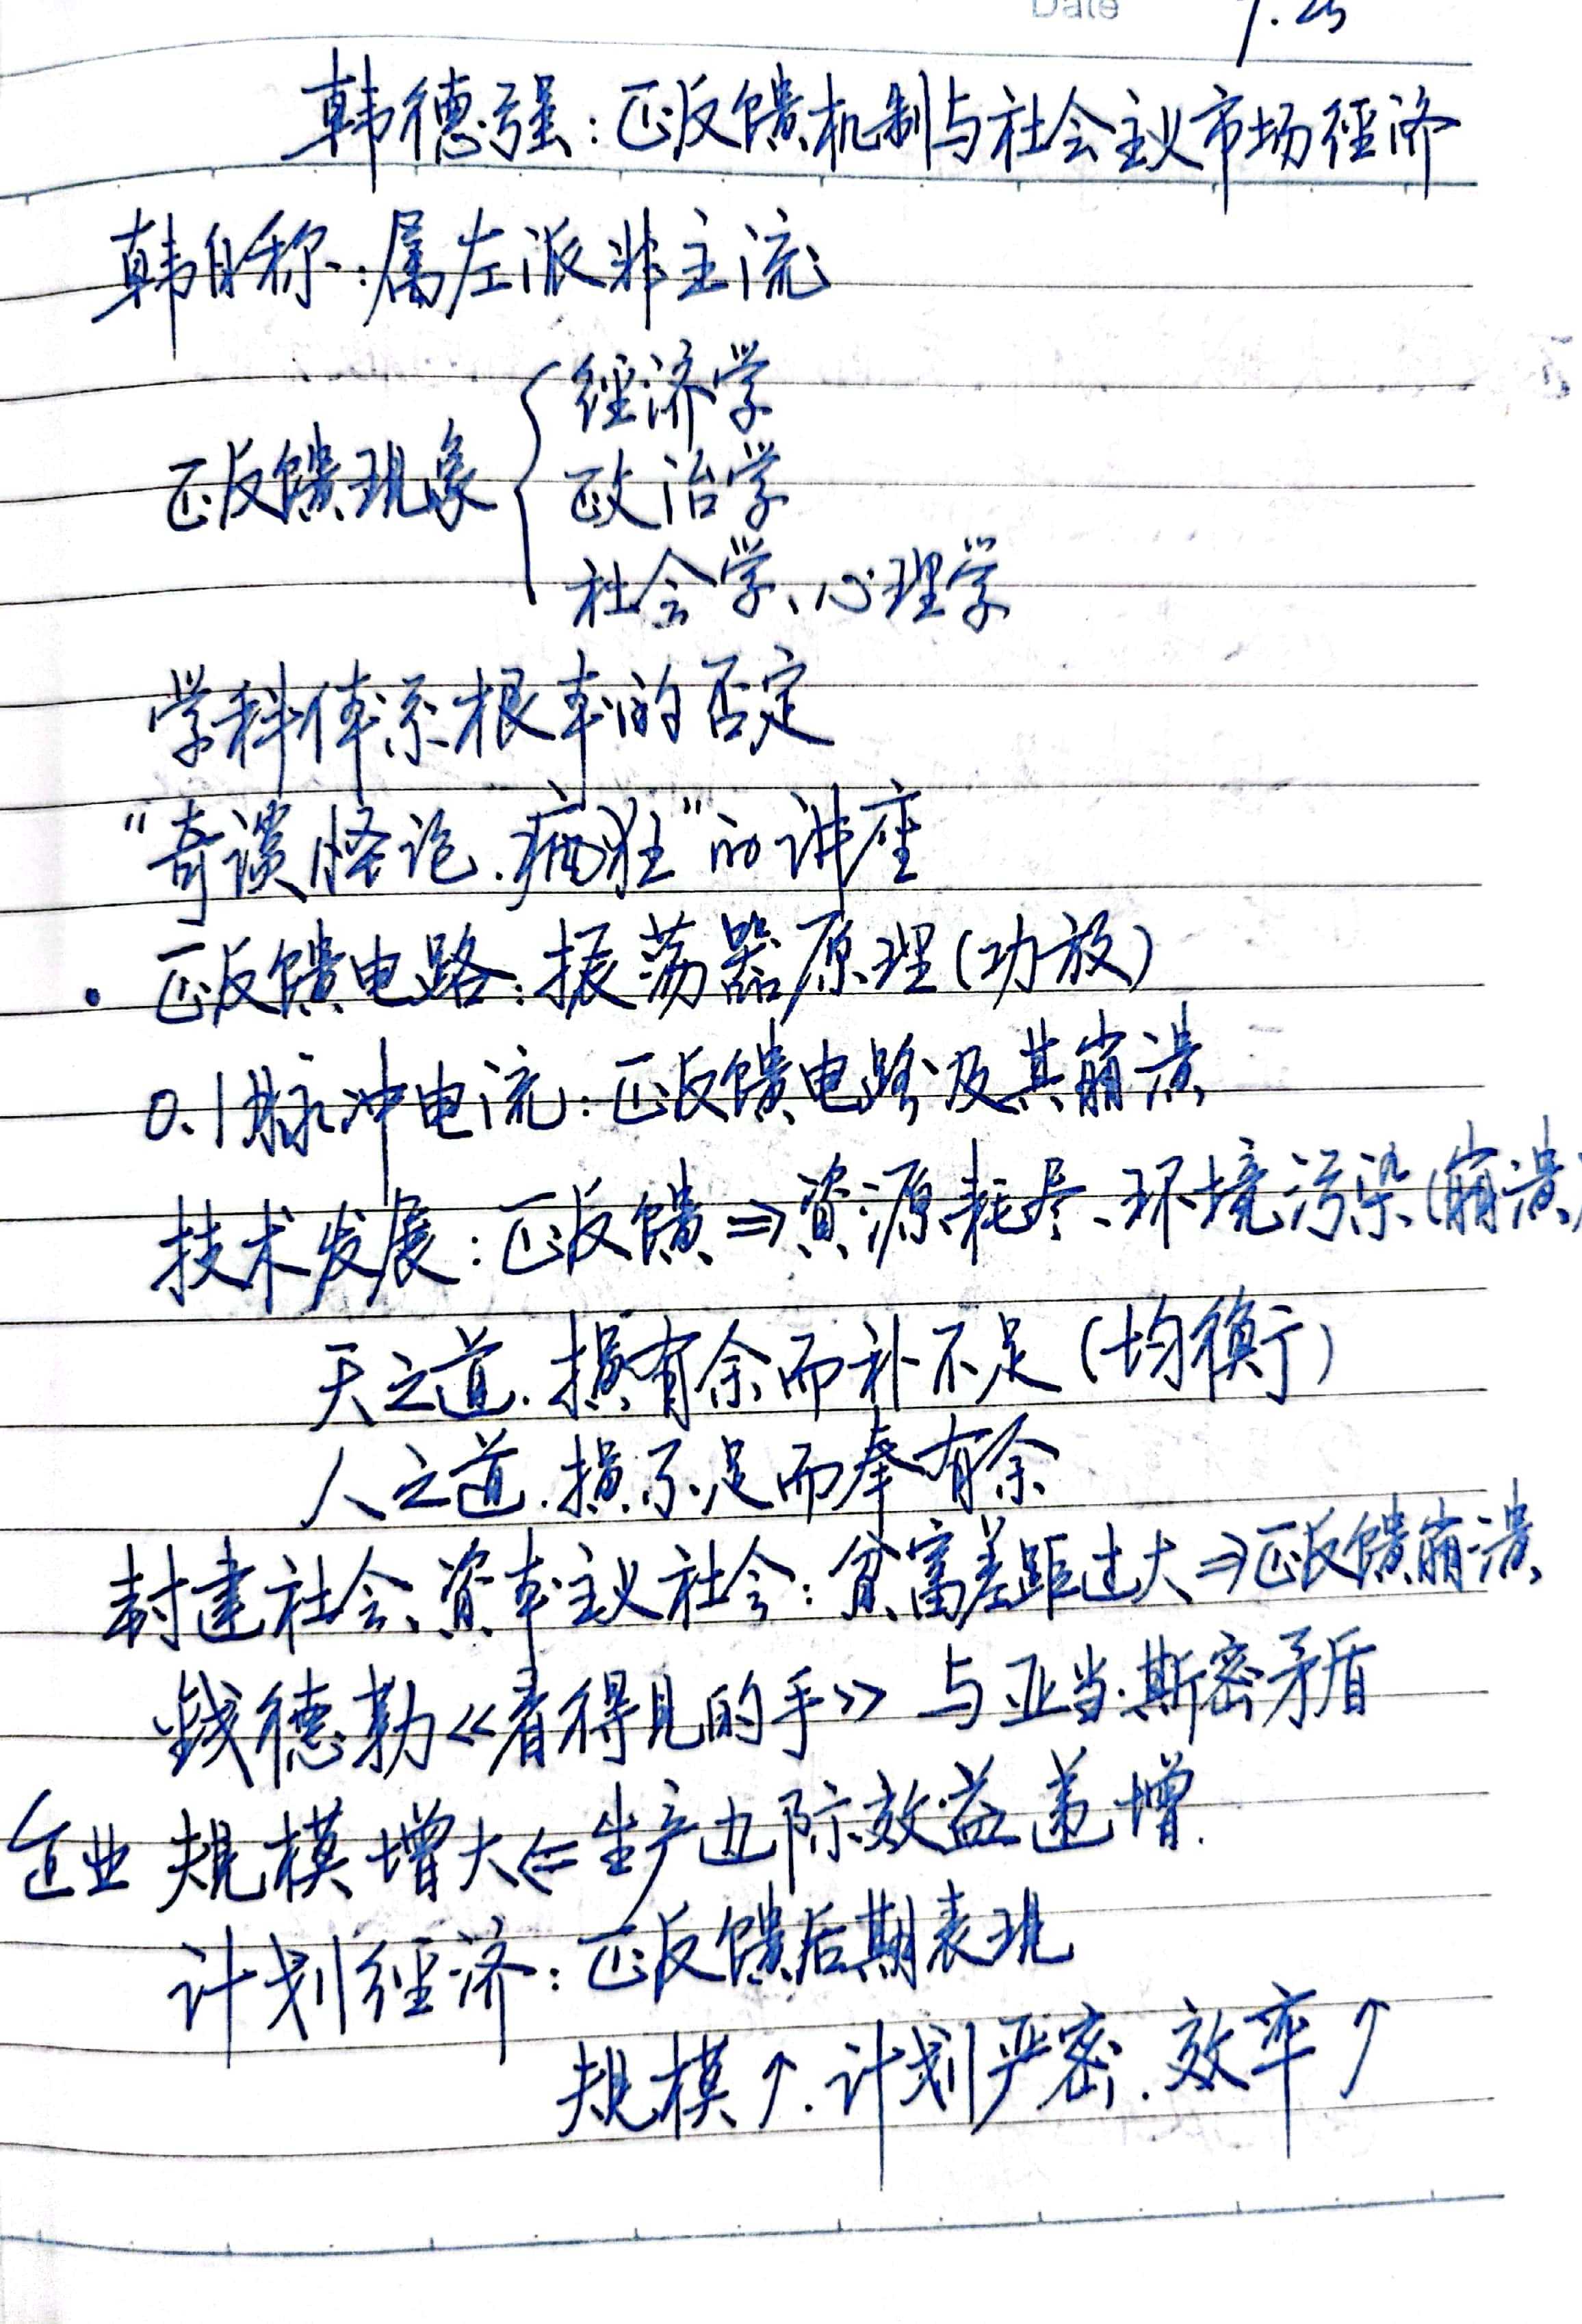 Date 9.25
韩德强:正反馈机制与社会主义市场经济
韩自称:属左派非主流
经济学
正反馈现象 政治学
社会学、心理学
学科体系根本的否定
“奇谈怪论.疯狂”的讲座
· 正反馈电路:振荡器原理(功放)
0.1脉冲电流:正反馈电路及其崩溃
技术发展:正反馈⇒资源耗尽、环境污染(崩溃)
天之道.损有余而补不足(均衡)
人之道.损不足而奉有余
封建社会、资本主义社会:贫富差距过大⇒正反馈崩溃
钱德勒《看得见的手》 与亚当·斯密矛盾
企业 规模增大⇐生产边际效益递增.
计划经济:正反馈后期表现
规模↑.计划严密.效率↑